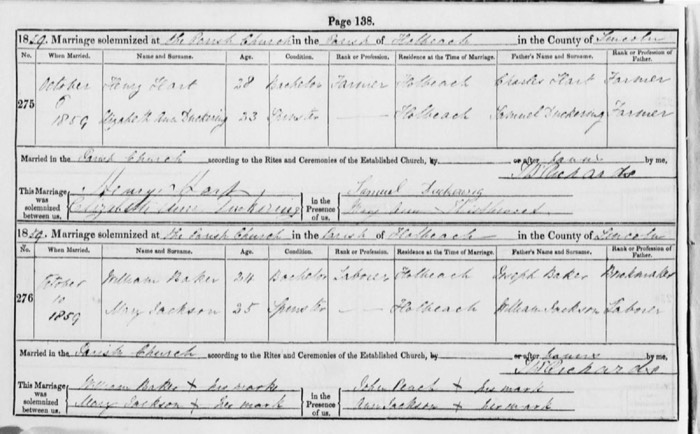 Page 138.
1859. Marriage solemnized at the Parish Church in the Parish of Holbeach in the County of Lincoln
No. When Married. Name and Surname. Age. Condition. Rank or Profession. Residence at the Time of Marriage. Father's Name and Surname. Rank or Profession of Father.
275 October 1859 Henry Hart 28 Bachelor Farmer Holbeach Charles Hart Farmer
Elizabeth Ann Duckering 23 Spinster — Holbeach Samuel Duckering Farmer
Married in the Parish Church according to the Rites and Ceremonies of the Established Church, by or after banns by me,
Richards
This Marriage was solemnized between us, Henry Hart Elizabeth Ann Duckering in the Presence of us, Samuel Duckering Mary Ann
1859. Marriage solemnized at the Parish Church in the Parish of Holbeach in the County of Lincoln
No. When Married. Name and Surname. Age. Condition. Rank or Profession. Residence at the Time of Marriage. Father's Name and Surname. Rank or Profession of Father.
276 October 10 1859 William Baker 24 Bachelor Laborer Holbeach Joseph Baker
Mary Jackson 25 Spinster — Holbeach William Jackson Laborer
Married in the Parish Church according to the Rites and Ceremonies of the Established Church, by or after banns by me,
Richards
This Marriage was solemnized between us, William Baker + his mark Mary Jackson + her mark in the Presence of us, John Peach + his mark Ann Jackson + her mark